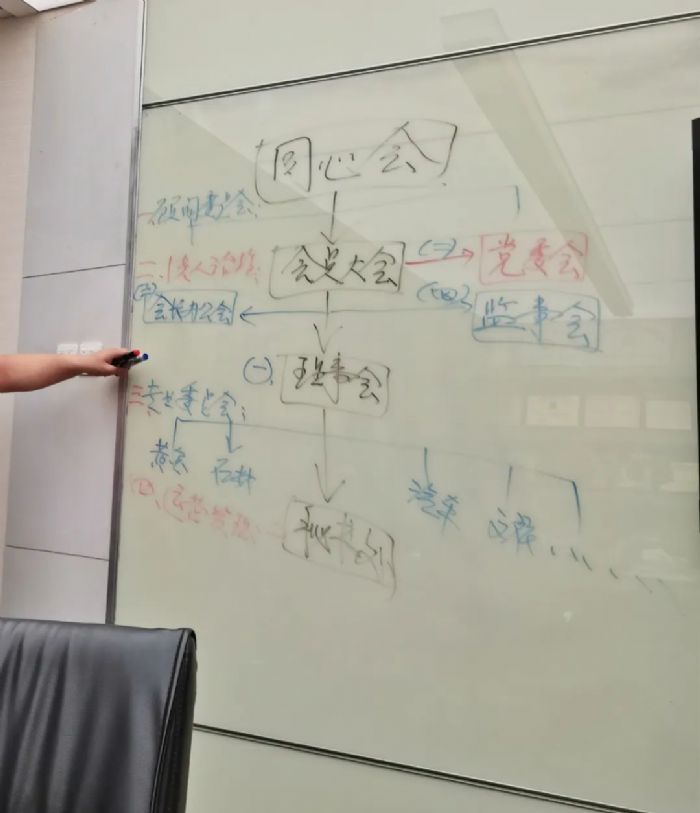 同心会
一、顾问委员会:
会员大会
(二)
党委会
(三)
会长办公会
(四)
监事会
(一)
理事会
三、专业委员会:
黄金
石材
汽车
文旅
秘书处